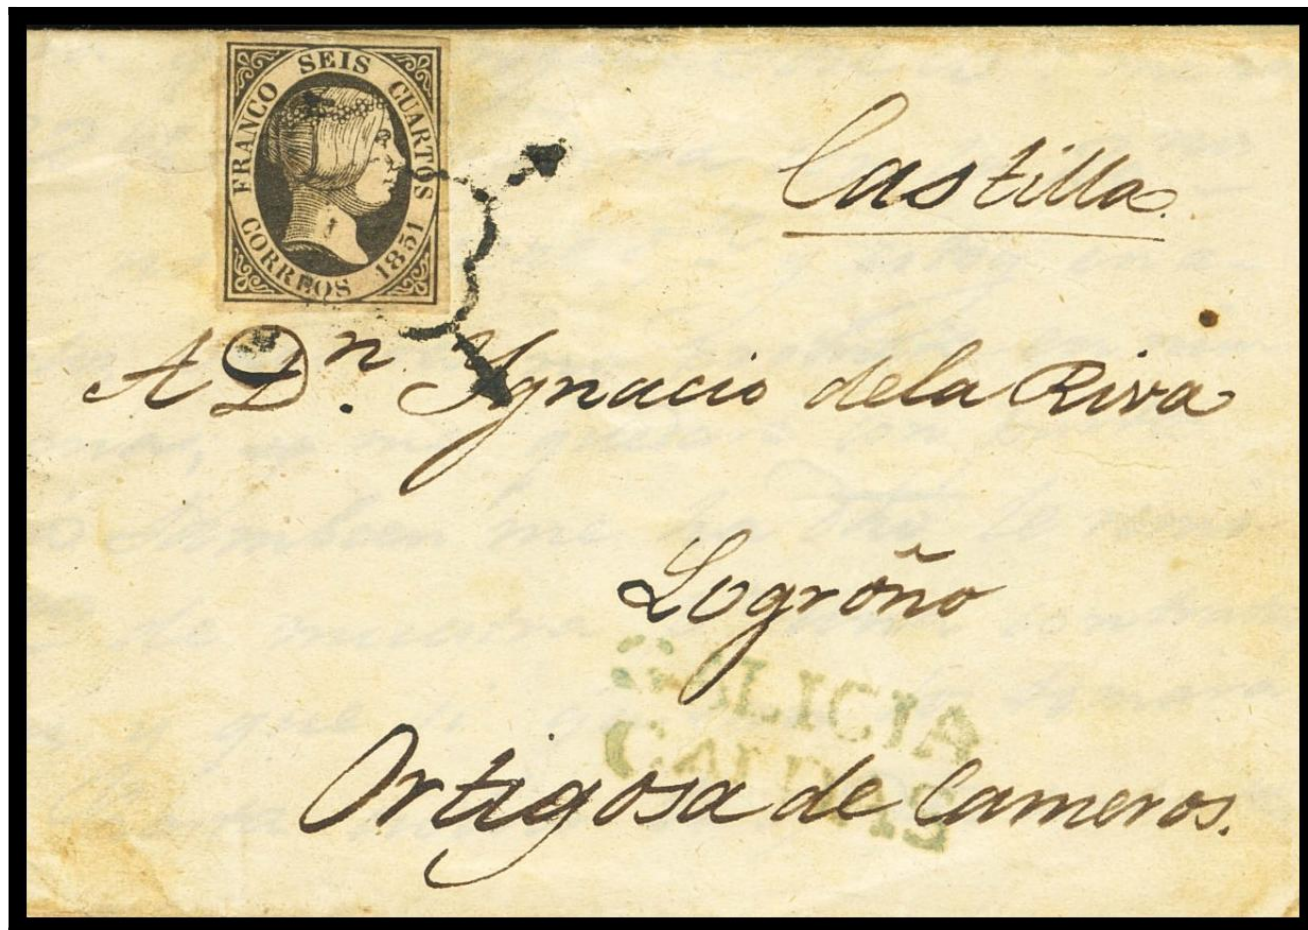 FRANCO SEIS CUARTOS
CORREOS 1851
Castilla.
A Dn. Ygnacio dela Riva
Logroño
GALICIA
CALDAS
Ortigosa de Cameros.